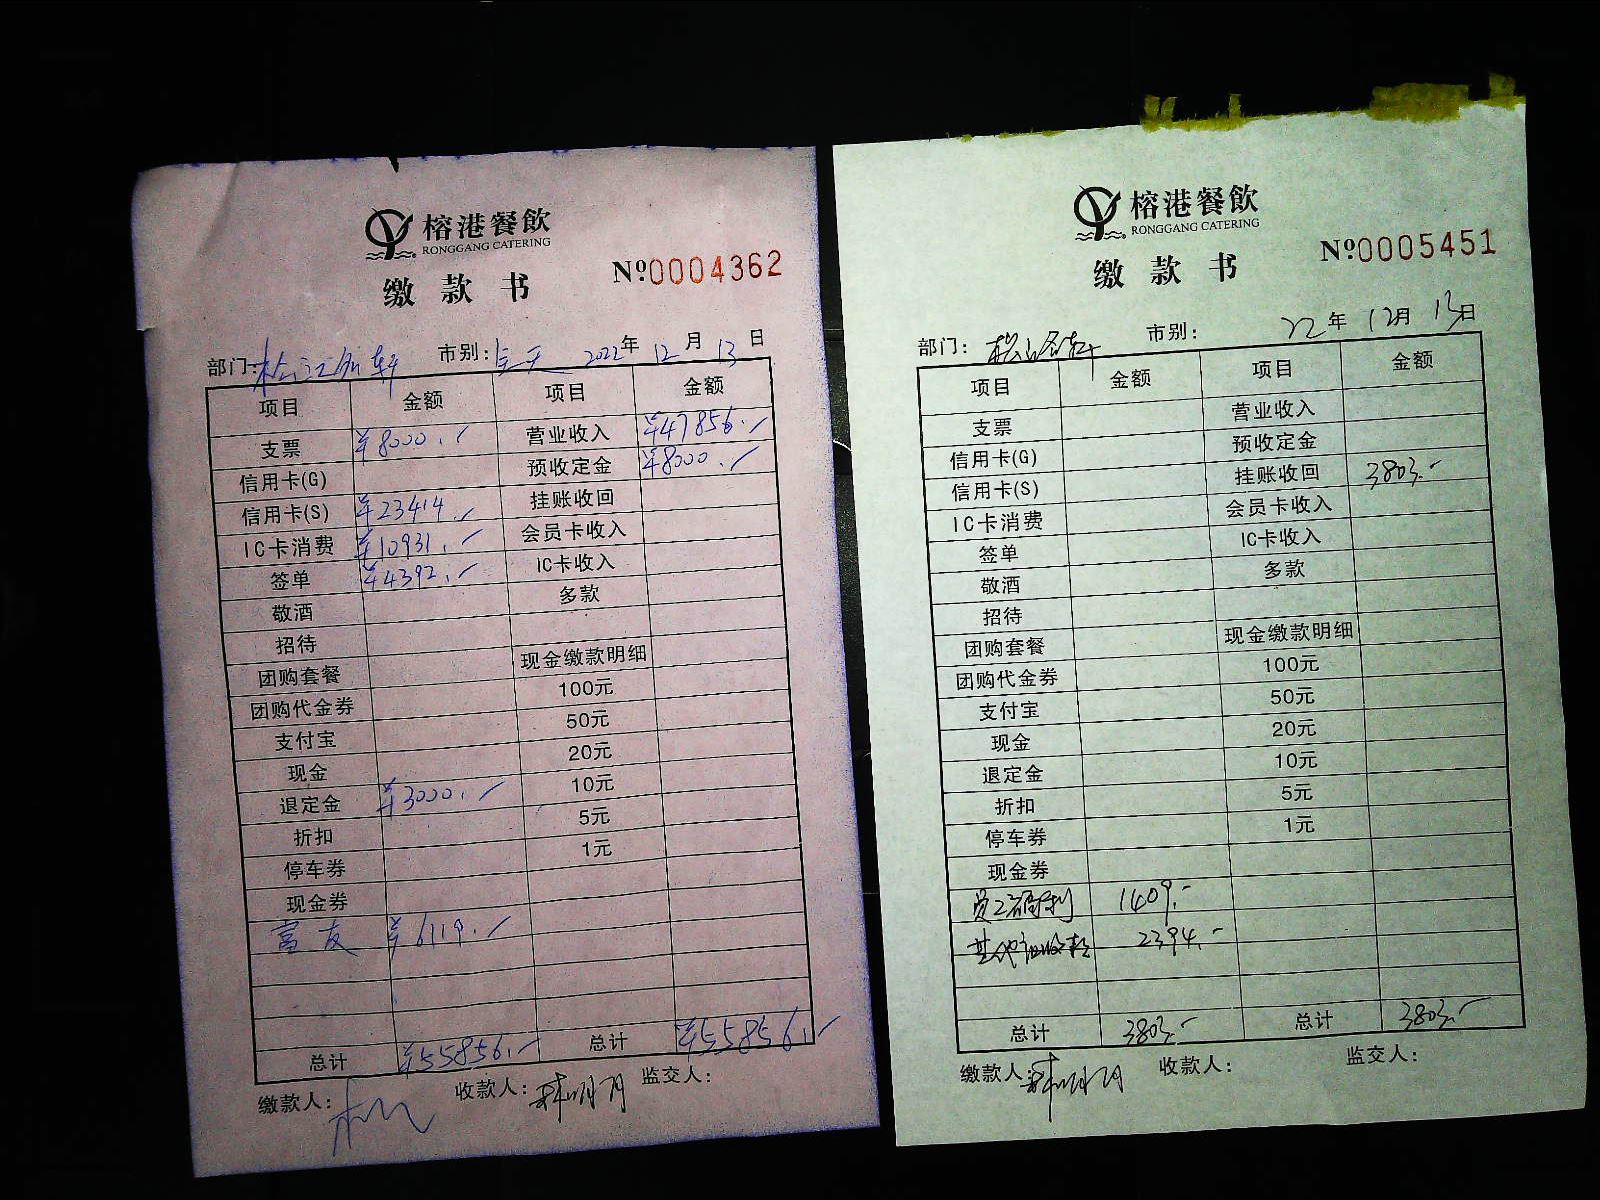 榕港餐飲
RONGGANG CATERING
缴款书
№0004362
部门: 松江名轩 市别: 全天 2022年 12月 13日
项目 金额 项目 金额
支票 ¥8000.- 营业收入 ¥47856.-
信用卡(G) 预收定金 ¥8000.-
信用卡(S) ¥23414.- 挂账收回
IC卡消费 ¥10931.- 会员卡收入
签单 ¥4392.- IC卡收入
敬酒 多款
招待
团购套餐 现金缴款明细
团购代金券 100元
支付宝 50元
现金 20元
退定金 ¥3000.- 10元
折扣 5元
停车券 1元
现金券
富友 ¥6119.-
总计 ¥55856.- 总计 ¥55856.-
缴款人: 收款人: 韩明月 监交人:
榕港餐飲
RONGGANG CATERING
缴款书
№0005451
部门: 松江名轩 市别: 22年 12月 13日
项目 金额 项目 金额
支票 营业收入
信用卡(G) 预收定金
信用卡(S) 挂账收回 3803.-
IC卡消费 会员卡收入
签单 IC卡收入
敬酒 多款
招待
团购套餐 现金缴款明细
团购代金券 100元
支付宝 50元
现金 20元
退定金 10元
折扣 5元
停车券 1元
现金券
员工福利 1409.-
其他应收款 2394.-
总计 3803.- 总计 3803.-
缴款人: 韩明月 收款人: 监交人: